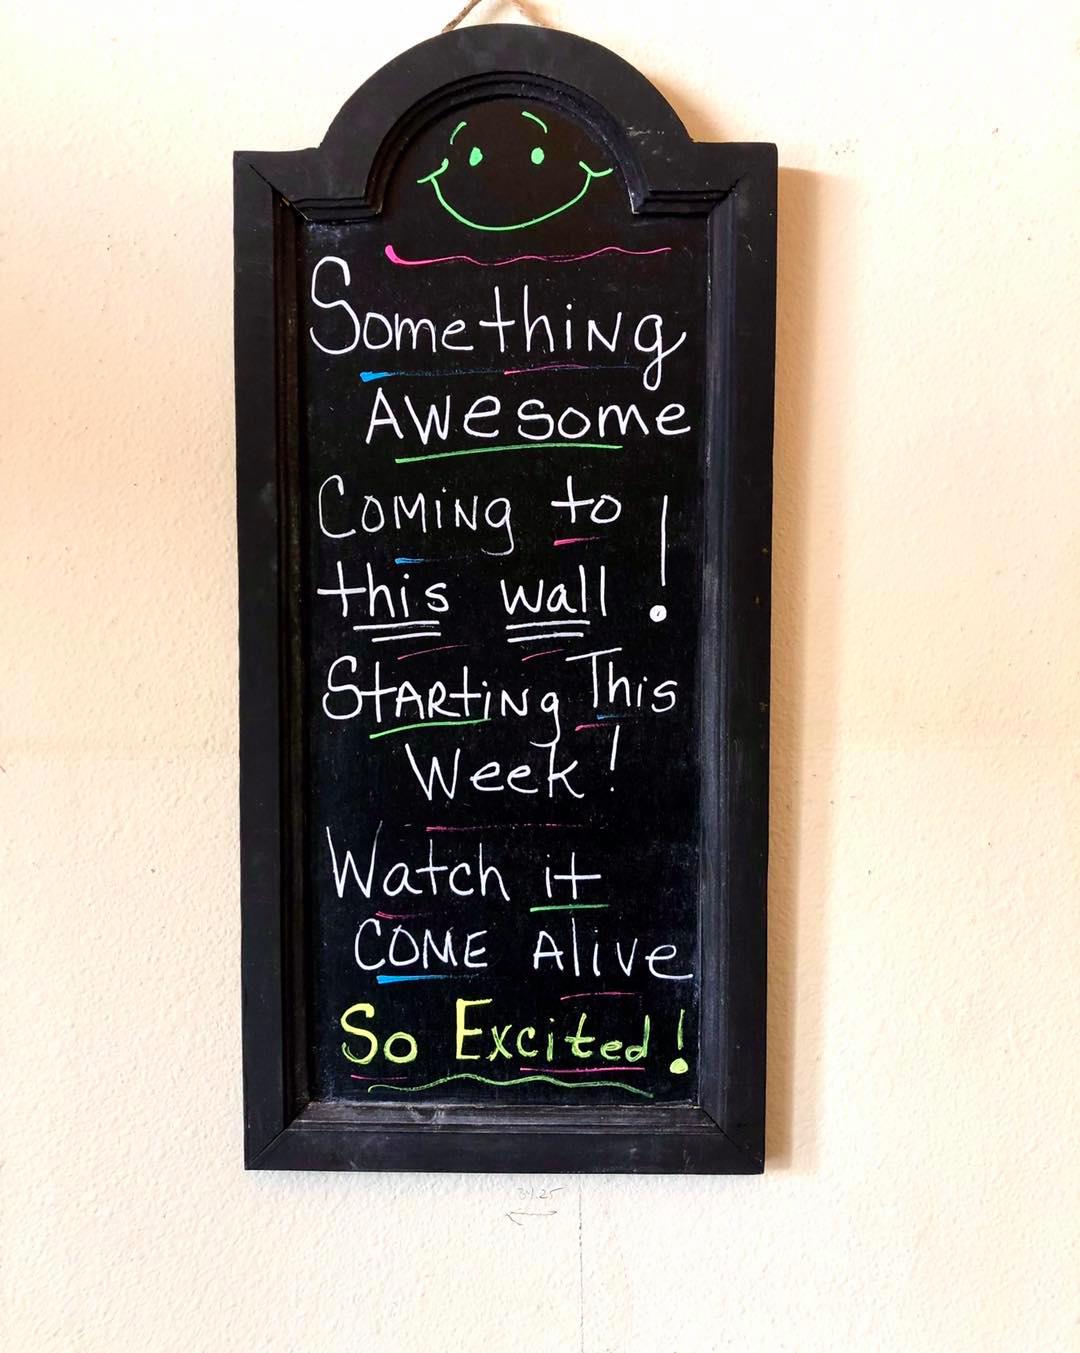 Something
Awesome
Coming to
this wall!
Starting This
Week!
Watch it
COME Alive
So Excited!
34.25